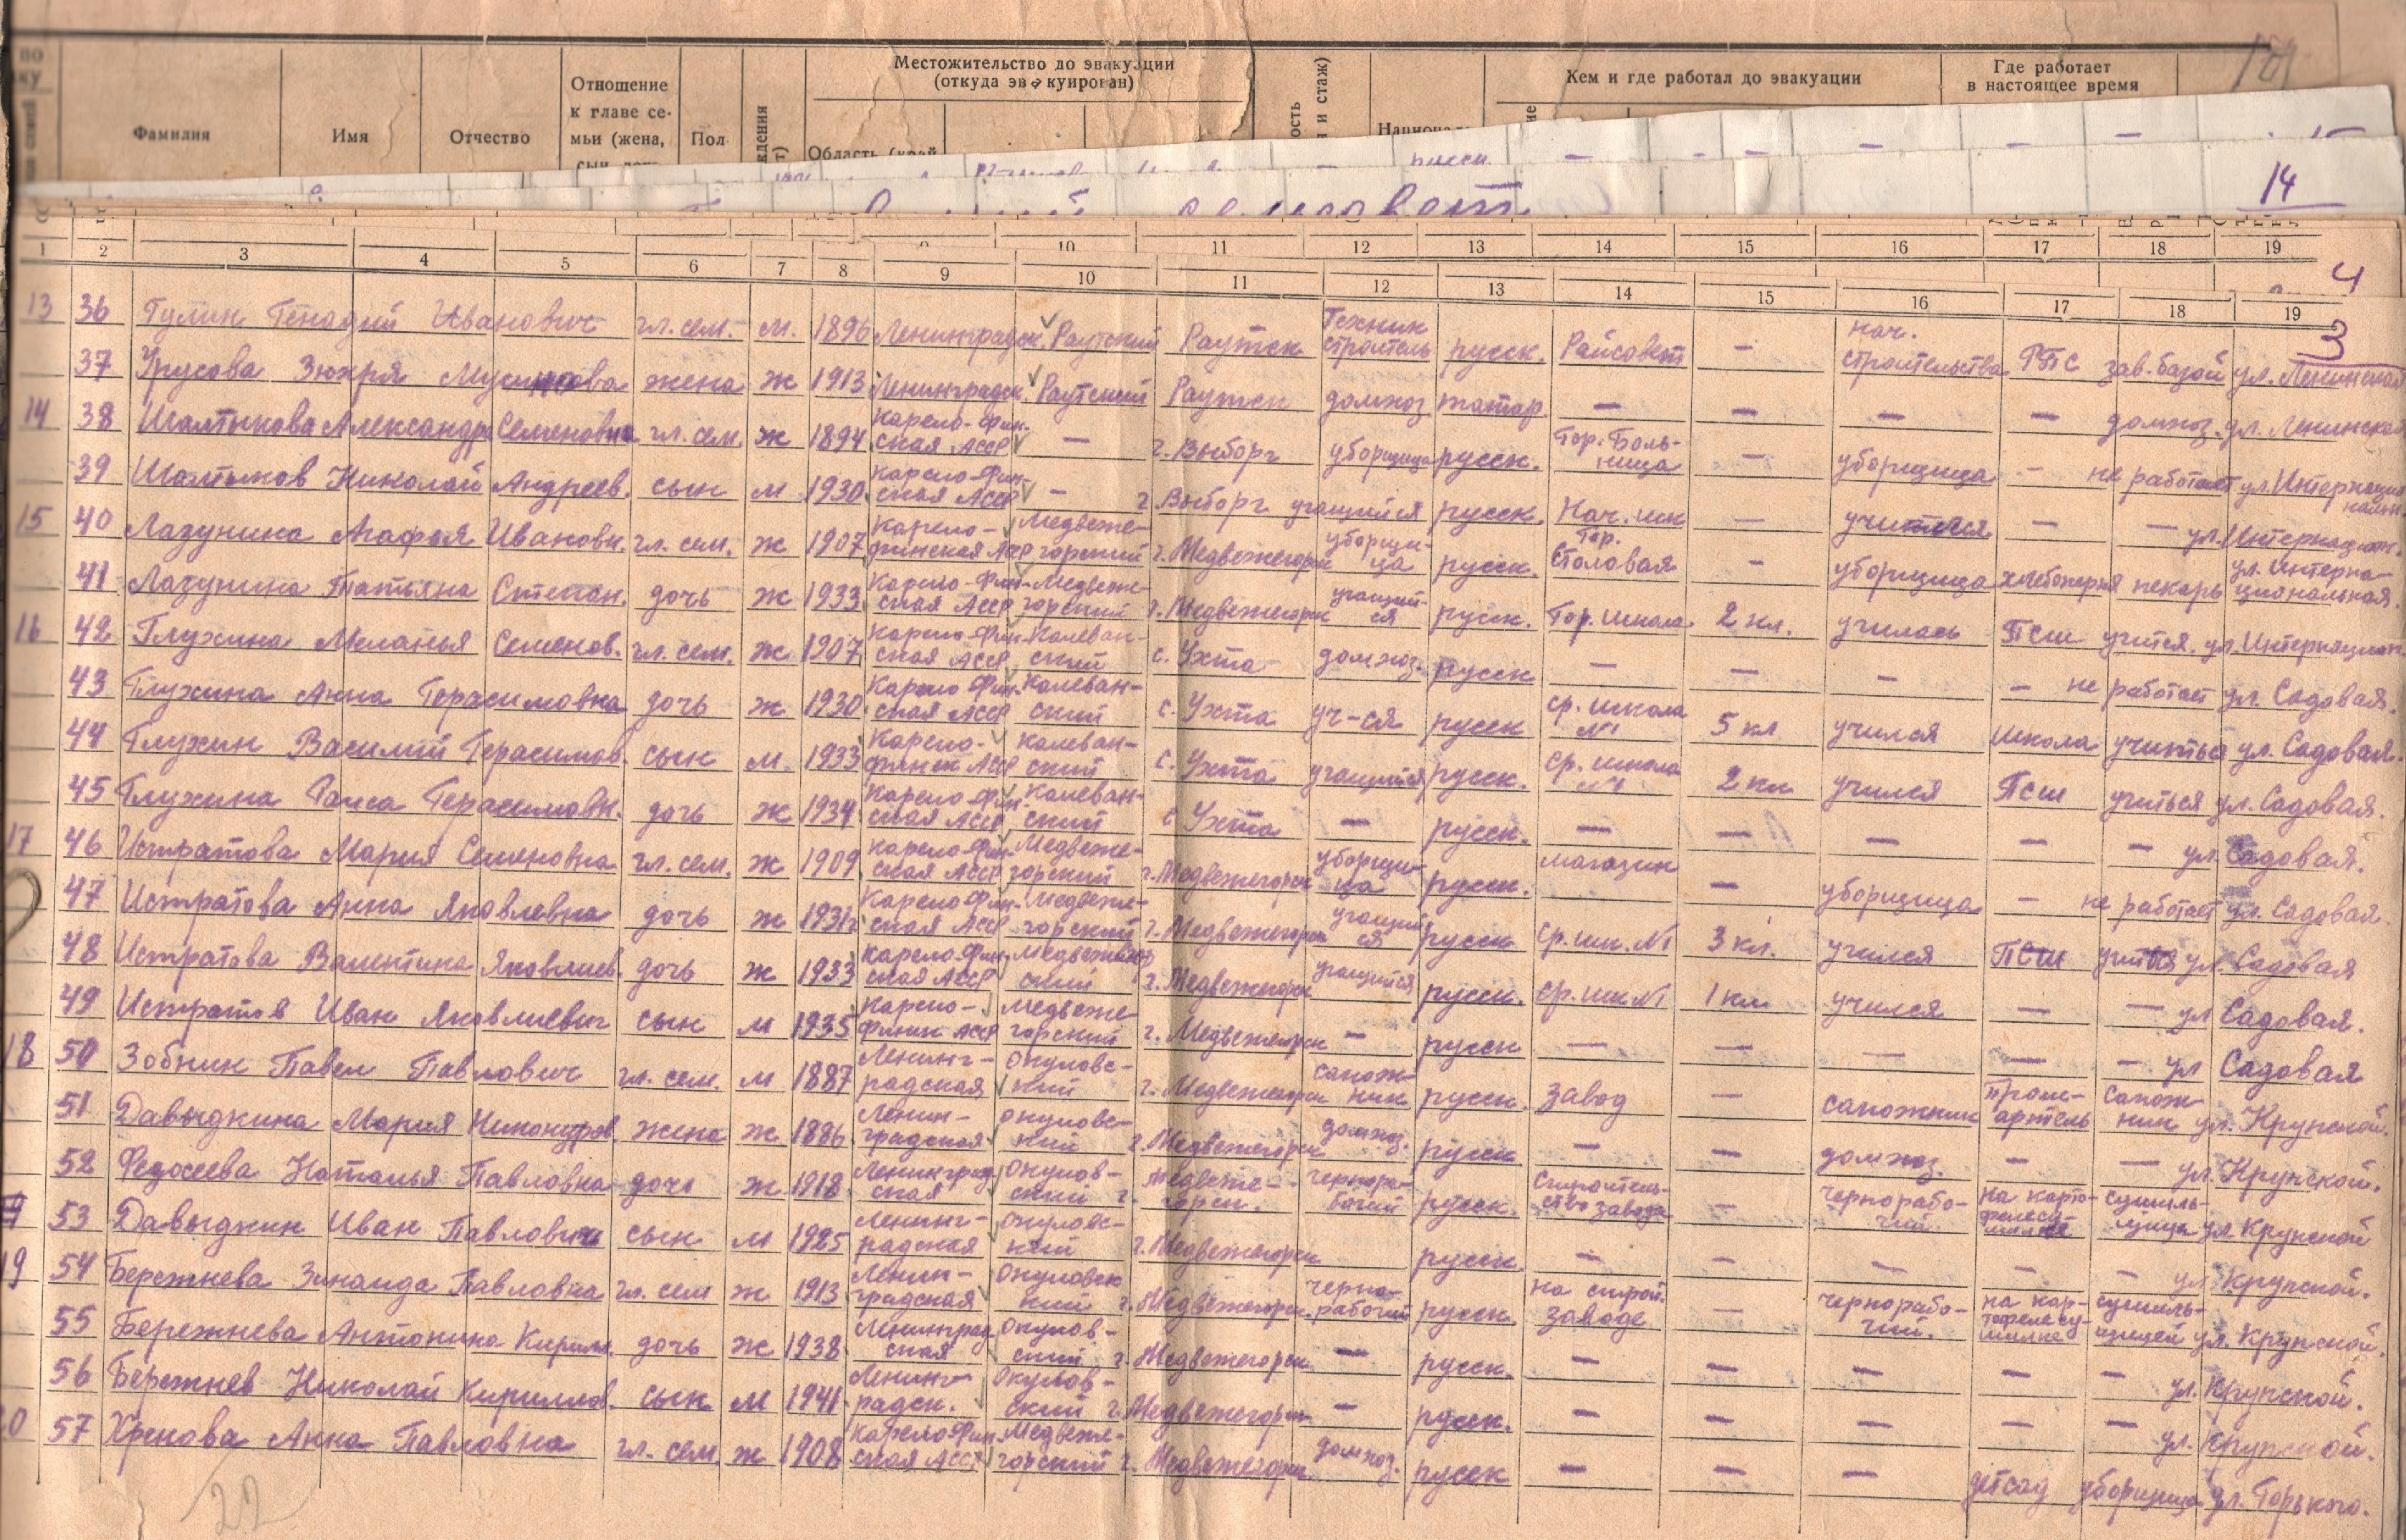 по
ку
Фамилия Имя Отчество Отношение к главе се- мьи (жена, Пол Местожительство до эвакуации (откуда эвакуирован) Область (край и стаж) Национ Кем и где работал до эвакуации Где работает в настоящее время
русск.
14
1 2 3 4 5 6 7 8 9 10 11 12 13 14 15 16 17 18 19
11 12 13 14 15 16 17 18 19
4
3
13 36 Гулин Генадий Иванович гл. сем. м. 1896 Ленинградск. Раутский Раутск Техник строитель русск. Райсовет — нач. строительства РПС зав. базой ул. Ленинская
37 Урусова Зюхря жена ж 1913 Ленинградск. Раутский Раутск домхоз. татар. — — — — домхоз. ул. Ленинская
14 38 Шалтыкова Александра Семеновна гл. сем. ж 1894 Карело-Фин- ская АССР — г. Выборг уборщица русск. Гор. Боль- ница — уборщица — не работает ул. Интернацио нальн.
39 Шалтыков Николай Андреев. сын м 1930 Карело-Фин- ская АССР — г. Выборг учащийся русск. Нач. шк — учился — — ул. Интернацион.
15 40 Лазунина Агафья Ивановн. гл. сем. ж 1907 Карело- финская АССР Медвеже- горский г. Медвежегорск уборщи- ца русск. Гор. столовая — уборщица хлебопекрня пекарь ул. Интерна- циональная.
41 Лазунина Татьяна Степан. дочь ж 1933 Карело-Фин- ская АССР Медвеже- горский г. Медвежегорск учащий- ся русск. Гор. школа 2 кл. училась ПСШ учится. ул. Интернацион.
16 42 Глухина Меланья Семенов. гл. сем. ж 1907 Карело-Фин- ская АССР Калеван- ский с. Ухта домхоз. русск — — — — не работает ул. Садовая.
43 Глухина Анна Герасимовна дочь ж 1930 Карело-Фин- ская АССР Калеван- ский с. Ухта уч-ся русск ср. школа №1 5 кл учился школа учиться ул. Садовая.
44 Глухин Василий Герасимов. сын м. 1933 Карело- финск АССР Калеван- ский с. Ухта учащийся русск. ср. школа №1 2 кл учился ПСШ учиться ул. Садовая.
45 Глухина Раиса Герасимовн. дочь ж 1934 Карело-Фин- ская АССР Калеван- ский с Ухта — русск. — — — — — ул. Садовая.
17 46 Истратова Мария Семеновна гл. сем. ж 1909 Карело-Фин- ская АССР Медвеже- горский г. Медвежегорск уборщи- ца русск. магазин — уборщица — не работает ул. Садовая.
47 Истратова Анна Яковлевна дочь ж 1931г Карело-Фин- ская АССР Медвеже- горский г. Медвежегорск учащий ся русск ср. шк. №1 3 кл. учился ПСШ учится ул. Садовая
48 Истратова Валентина Яковлев. дочь ж 1933 Карело-Фин- ская АССР Медвежегор ский г. Медвежегорск учащийся русск. ср. шк №1 1 кл учился — — ул Садовая.
49 Истратов Иван Яковлевич сын м 1935 Карело- Финск АССР Медвеже горский г. Медвежегорск — русск — — — — — ул Садовая
18 50 Зобнин Павел Павлович гл. сем. м 1887 Ленинг- радская Окуловс- кий г. Медвежегорск сапож- ник русск. завод — сапожник пром- артель сапож- ник ул. Крупской.
51 Давыдкина Мария Никаноров. жена ж 1886 Ленин- градская Окуловс- кий г. Медвежегорск домхоз. русск — — домхоз. — — ул. Крупской.
52 Федосеева Наталья Павловна дочь ж 1918 Ленинград ская Окулов- ский г. Медвеже- горск. чернора- бочий русск. Строитель- ство завода — чернорабо- чий на карто- фелесу- шилке сушиль- щица ул Крупской
53 Давыдкин Иван Павлович сын м 1925 Ленинг- радская Окуловс- кий г. Медвежегорск русск — — — — — ул. Крупской.
19 54 Бережнева Зинаида Павловна гл. сем ж 1913 Ленин- градская Окуловск кий г. Медвежегорск. черно- рабочий русск. на строй. заводе — чернорабо- чий. на кар- тофелесу- шилке сушиль- щицей ул. Крупской.
55 Бережнева Антонина Кирилл. дочь ж 1938 Ленинград ская Окулов- ский г. Медвежегорск — русск. — — — — — ул. Крупской.
56 Бережнев Николай Кириллов. сын м 1941 Ленинг- радск. Окулов- ский г. Медвежегорск — русск. — — — — — ул. Крупской.
20 57 Хренова Анна Павловна гл. сем. ж 1908 Карело-Фин ская АССР Медвеже- горский г. Медвежегорск домхоз. русск — — — детсад уборщица ул. Горького.
22